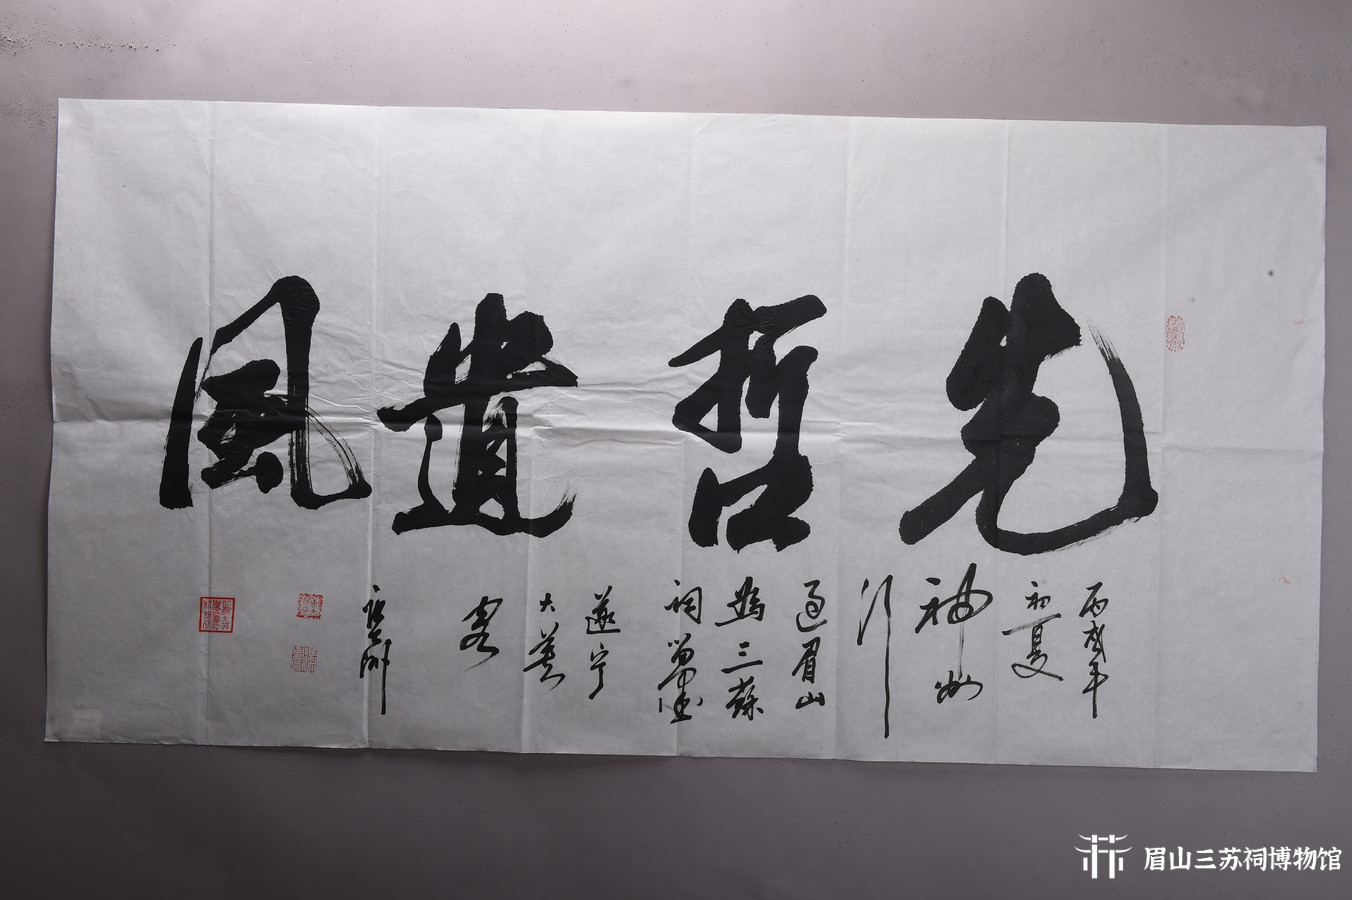 先哲遺風
丙戌年
初夏
神州
行
過眉山
為三蘇
祠留墨
遂寧
大英
客
眉山三苏祠博物馆